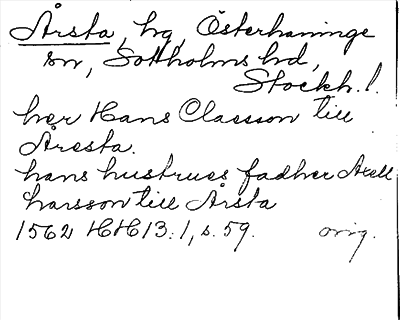 Årsta, hg, Österhaninge
sn, Sottholms hd,
Stockh. l.
her Hans Classon till
Åresta.
hans hustrues fadher Axell
harsson till Årsta
1562 HH 13:1, s. 59. orig.